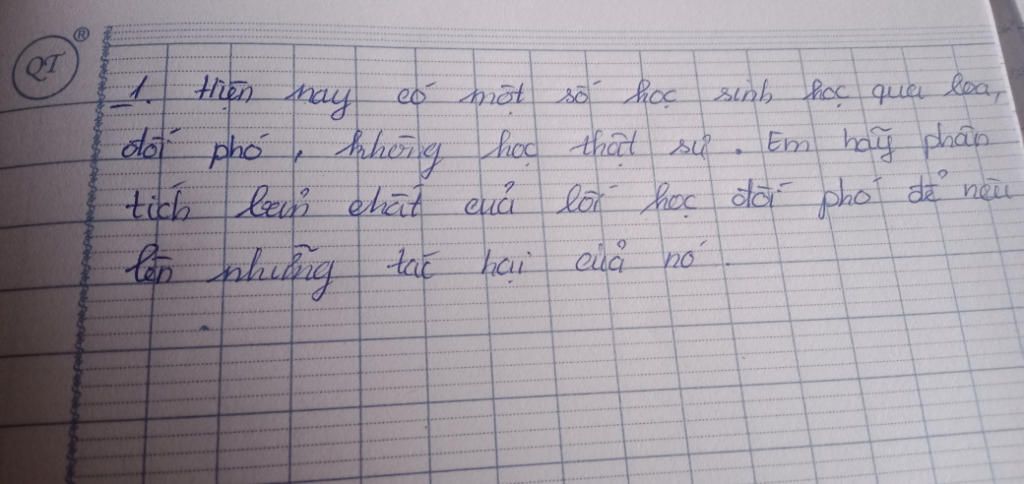 QT ®
1. Hiện nay có một số học sinh học qua loa,
đối phó, không học thật sự. Em hãy phân
tích bản chất của lối học đối phó để nêu
lên những tác hại của nó.